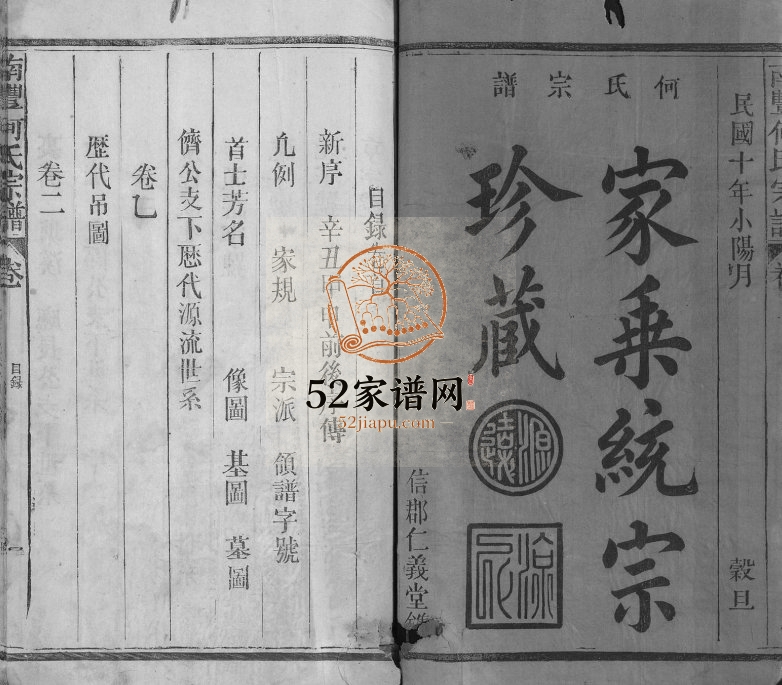 何氏宗譜
民國十年小陽月 穀旦
家乘統宗
珍藏
源遠
信郡仁義堂
目錄
新序 辛丑 申前後 傳
凡例 家規 宗派 領譜字號
首士芳名 像圖 基圖 墓圖
儕公支下歷代源流世系
卷乙
歷代吊圖
卷二
南豐何氏宗譜 卷一 目錄 一
52家谱网
52jiapu.com